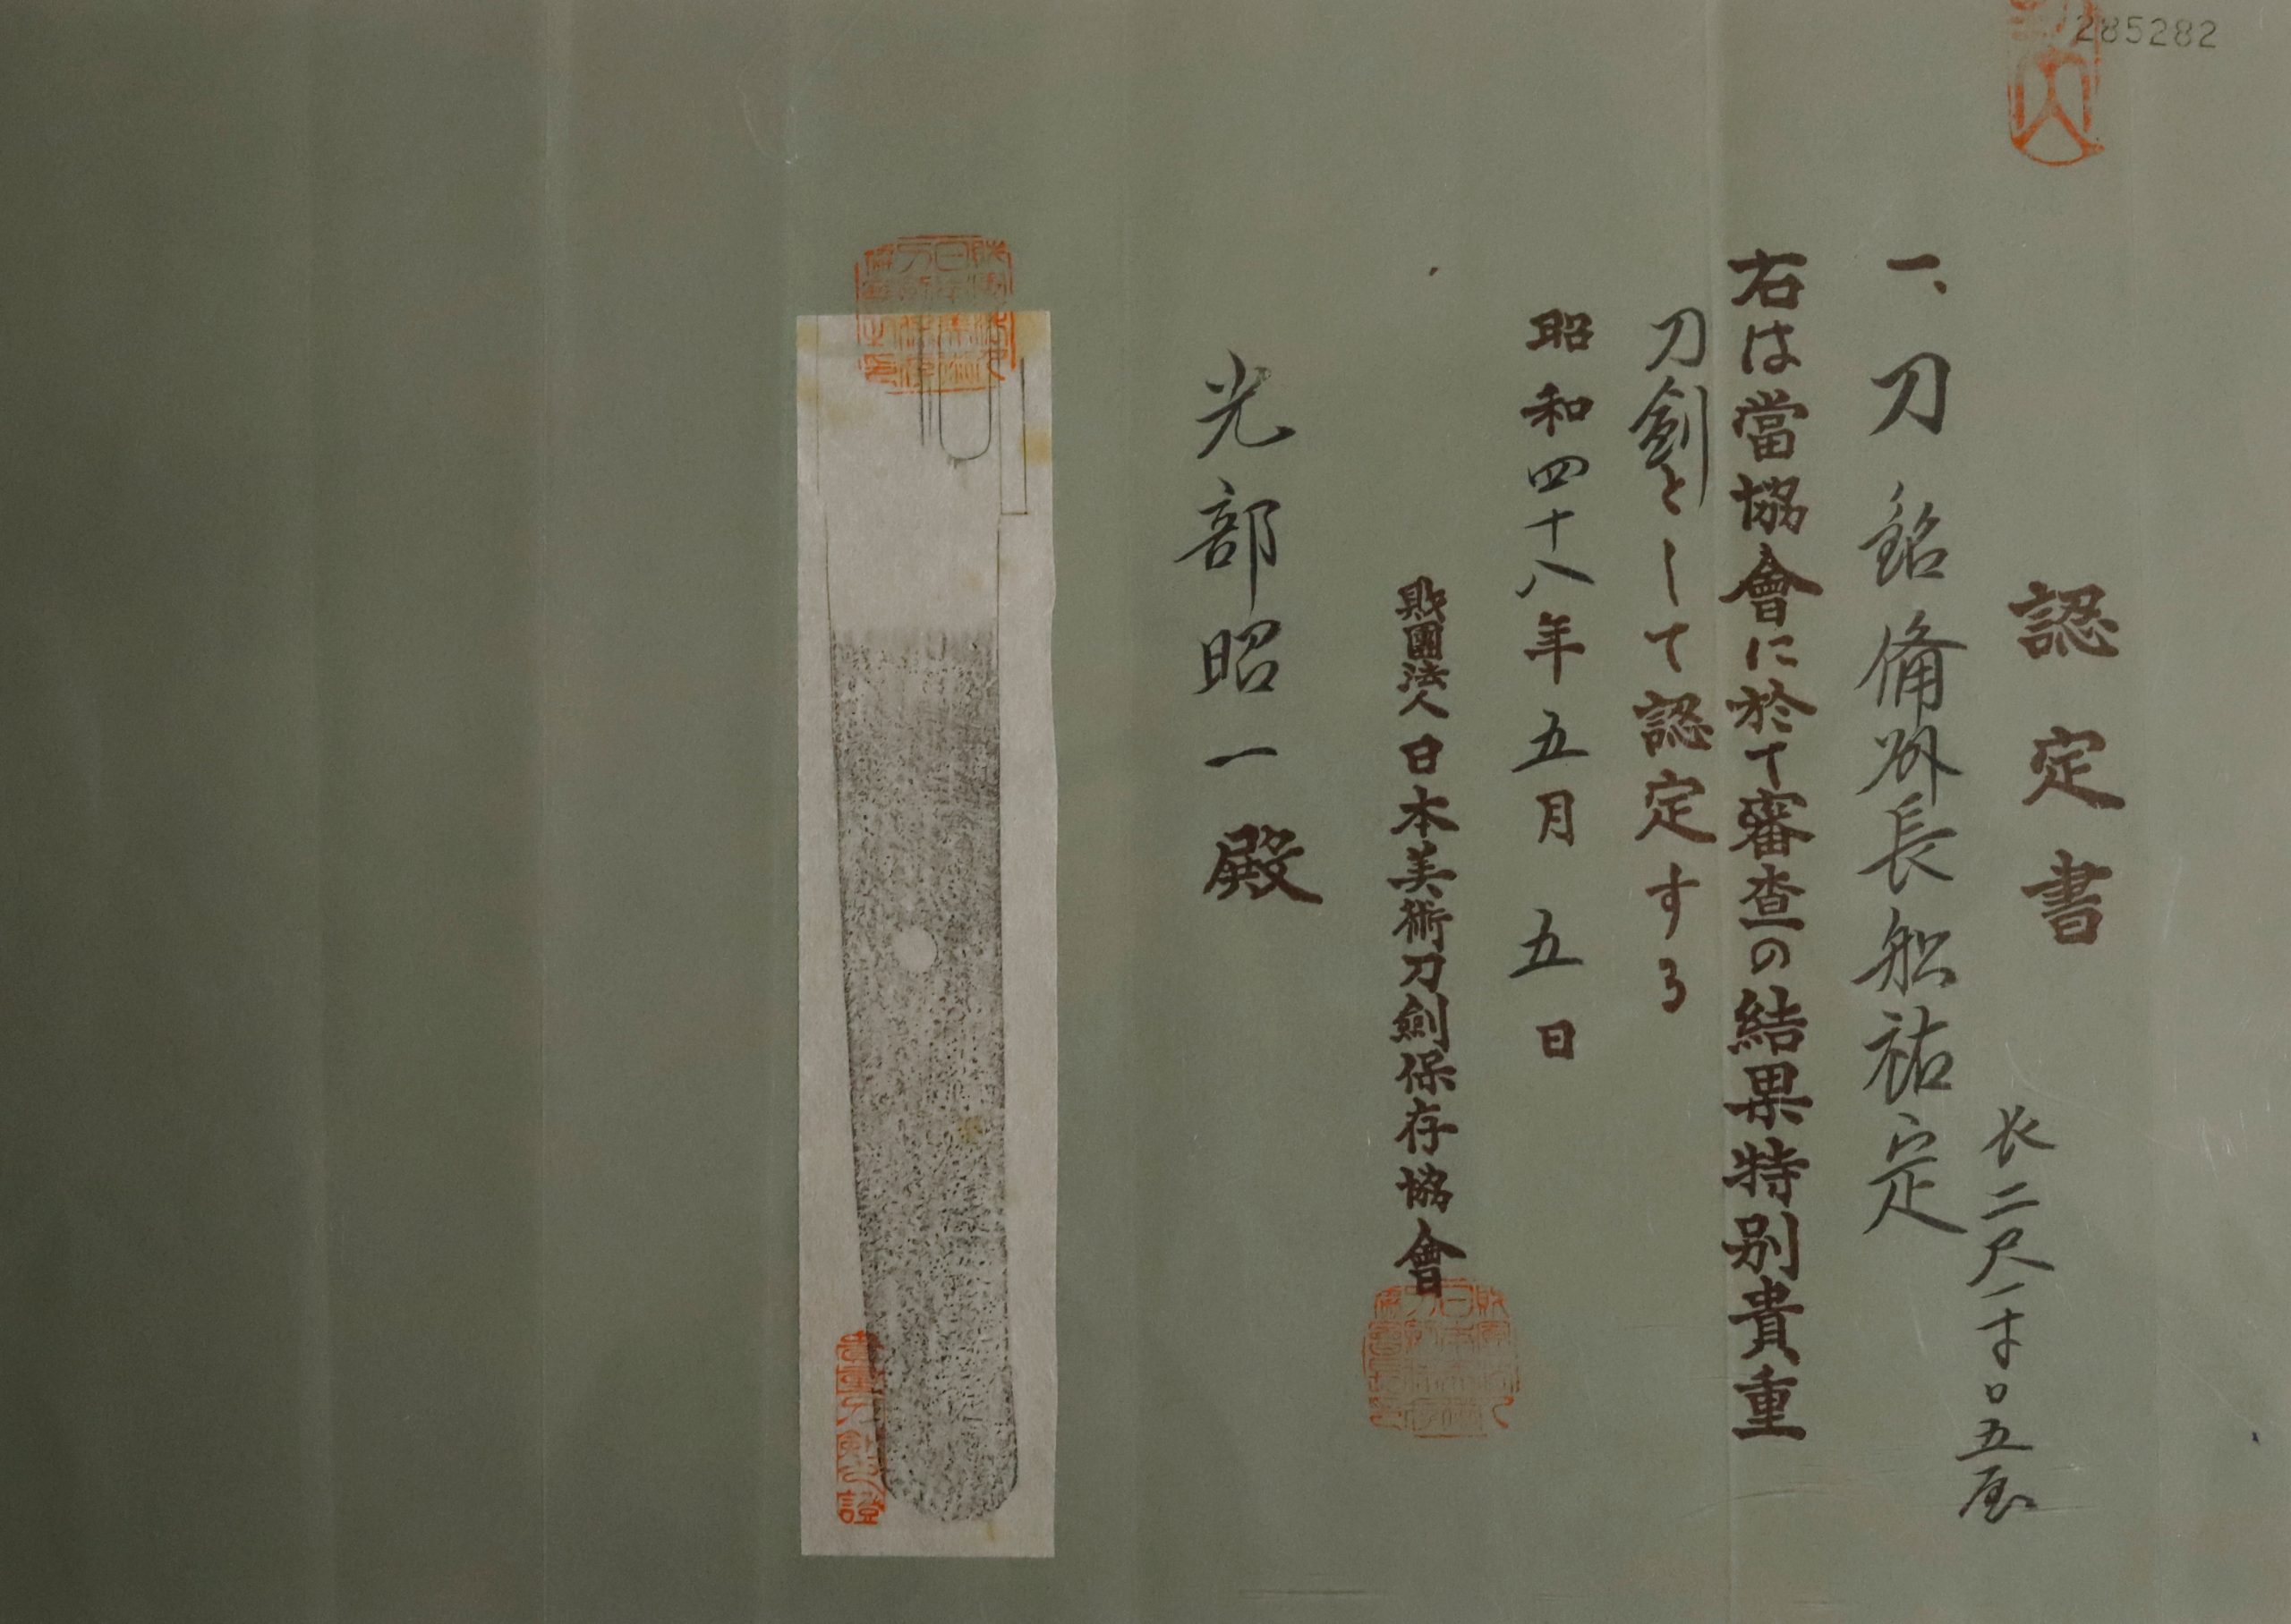 285282
認定書
一、刀 銘 備州長船祐定
長二尺一寸0五厘
右は當協會に於て審査の結果特別貴重
刀劍として認定する
昭和四十八年五月五日
財團法人日本美術刀劍保存協會
光部昭一殿
貴重刀劍之證